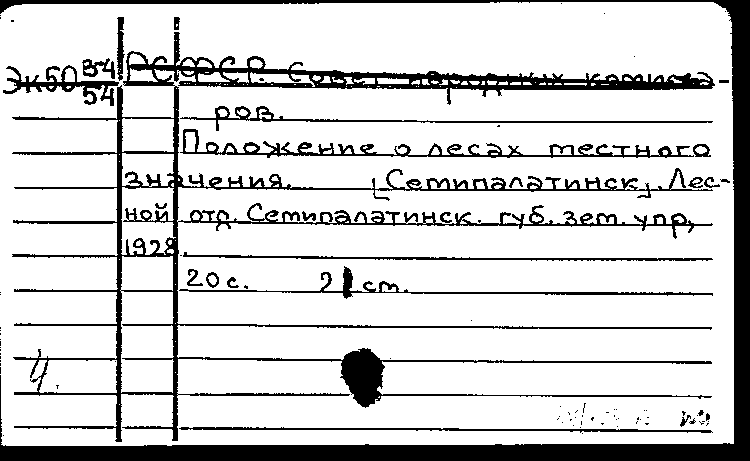 Эк50 34/54 РСФСР. Совет народных комисса-
ров.
Положение о лесах местного
значения. [Семипалатинск]. Лес-
ной отд. Семипалатинск. губ. зем. упр,
1928.
20 с. 21 ст.
4.